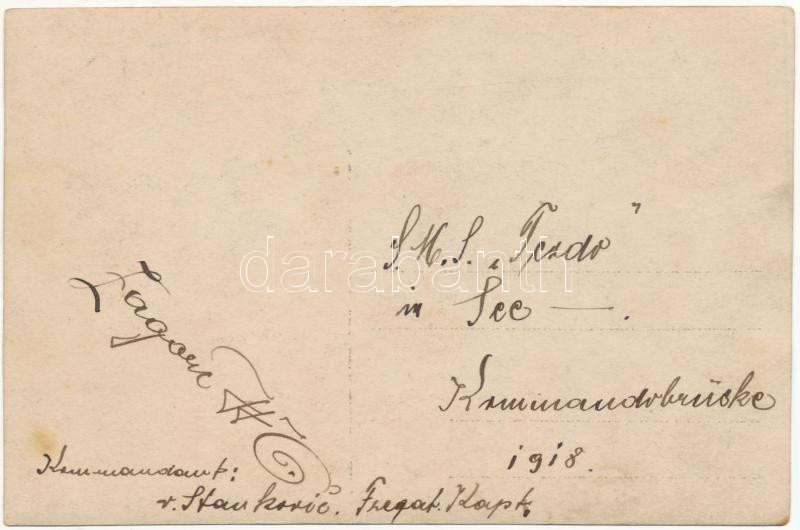 S.M.S. „Tezdo"
in See —.
Kommandobrücke
1918.
Zagon
Kommandant:
v. Stanković. Fregat. Kapt.
darabanth